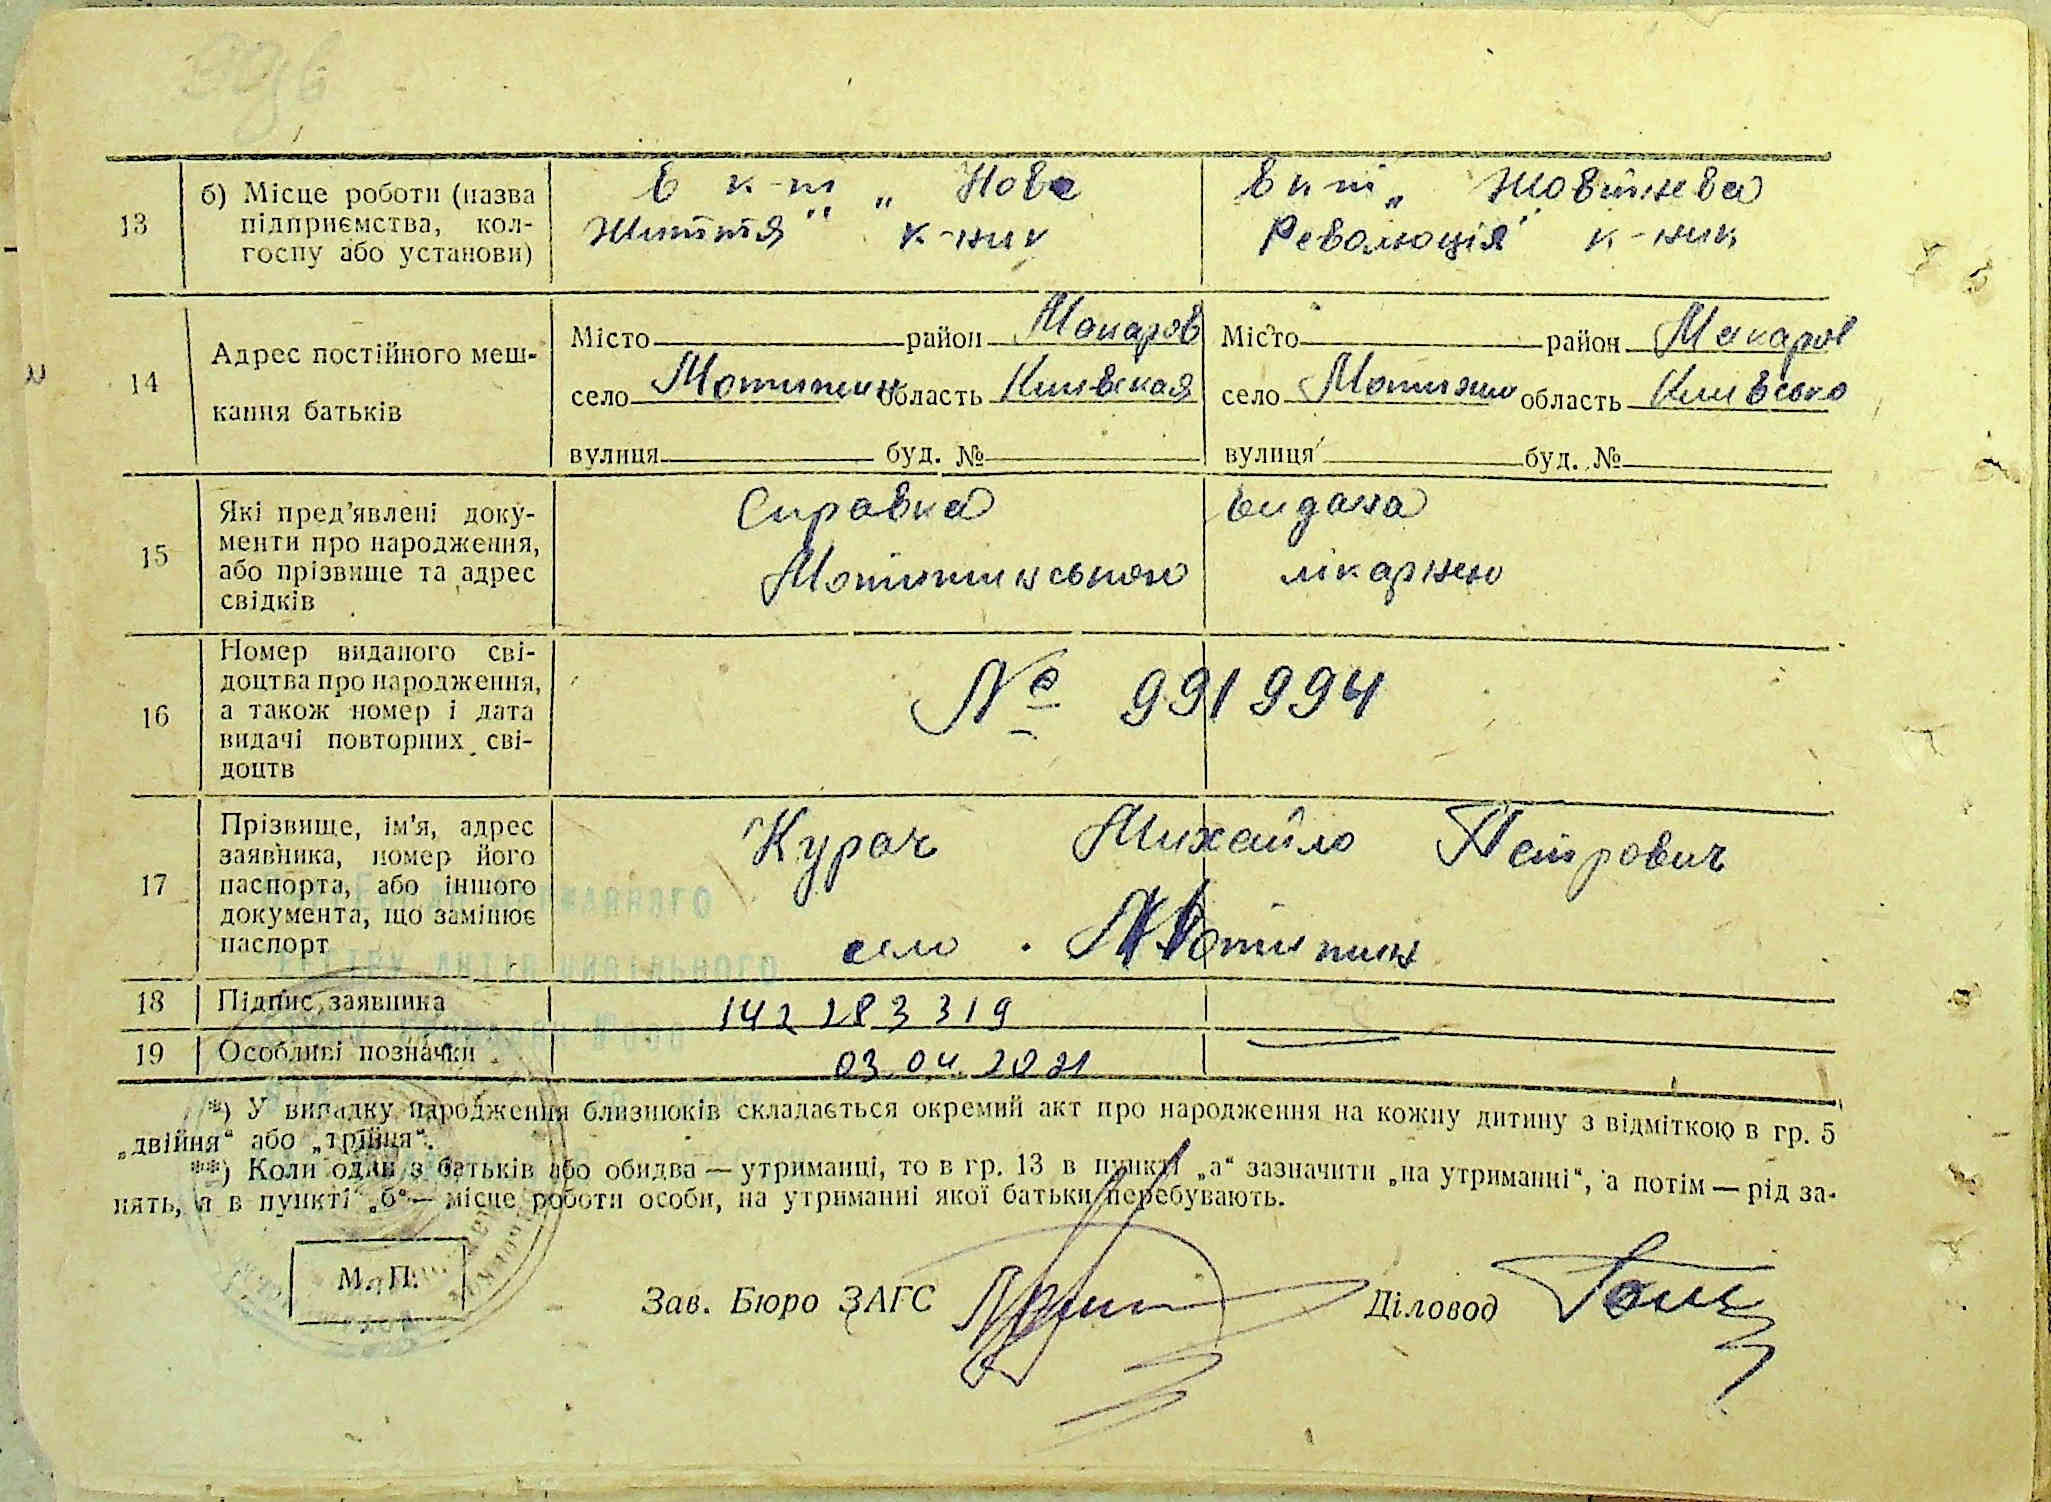 13 б) Місце роботи (назва підприємства, колгоспу або установи)
В к-т „Нове Життя" к-ник
В к-т „Жовтнева Революція" к-ник
14 Адрес постійного мешкання батьків
Місто район Макаров
село Мотижин область Киевская
вулиця буд. №
Місто район Макаров
село Мотижин область
вулиця буд. №
15 Які пред'явлені документи про народження, або прізвище та адрес свідків
Справка видана
лікарнею
16 Номер виданого свідоцтва про народження, а також номер і дата видачі повторних свідоцтв
№ 991994
17 Прізвище, ім'я, адрес заявника, номер його паспорта, або іншого документа, що замінює паспорт
Курач Михайло Петрович
село
18 Підпис заявника
142283319
19 Особливі позначки
03.04.2021
*) У випадку народження близнюків складається окремий акт про народження на кожну дитину з відміткою в гр. 5
„двійня" або „трійця".
**) Коли один з батьків або обидва — утриманці, то в гр. 13 в пункті „а" зазначити „на утриманні", а потім — рід за-
нять, а в пункті „б" — місце роботи особи, на утриманні якої батьки перебувають.
М. П.
Зав. Бюро ЗАГС
Діловод